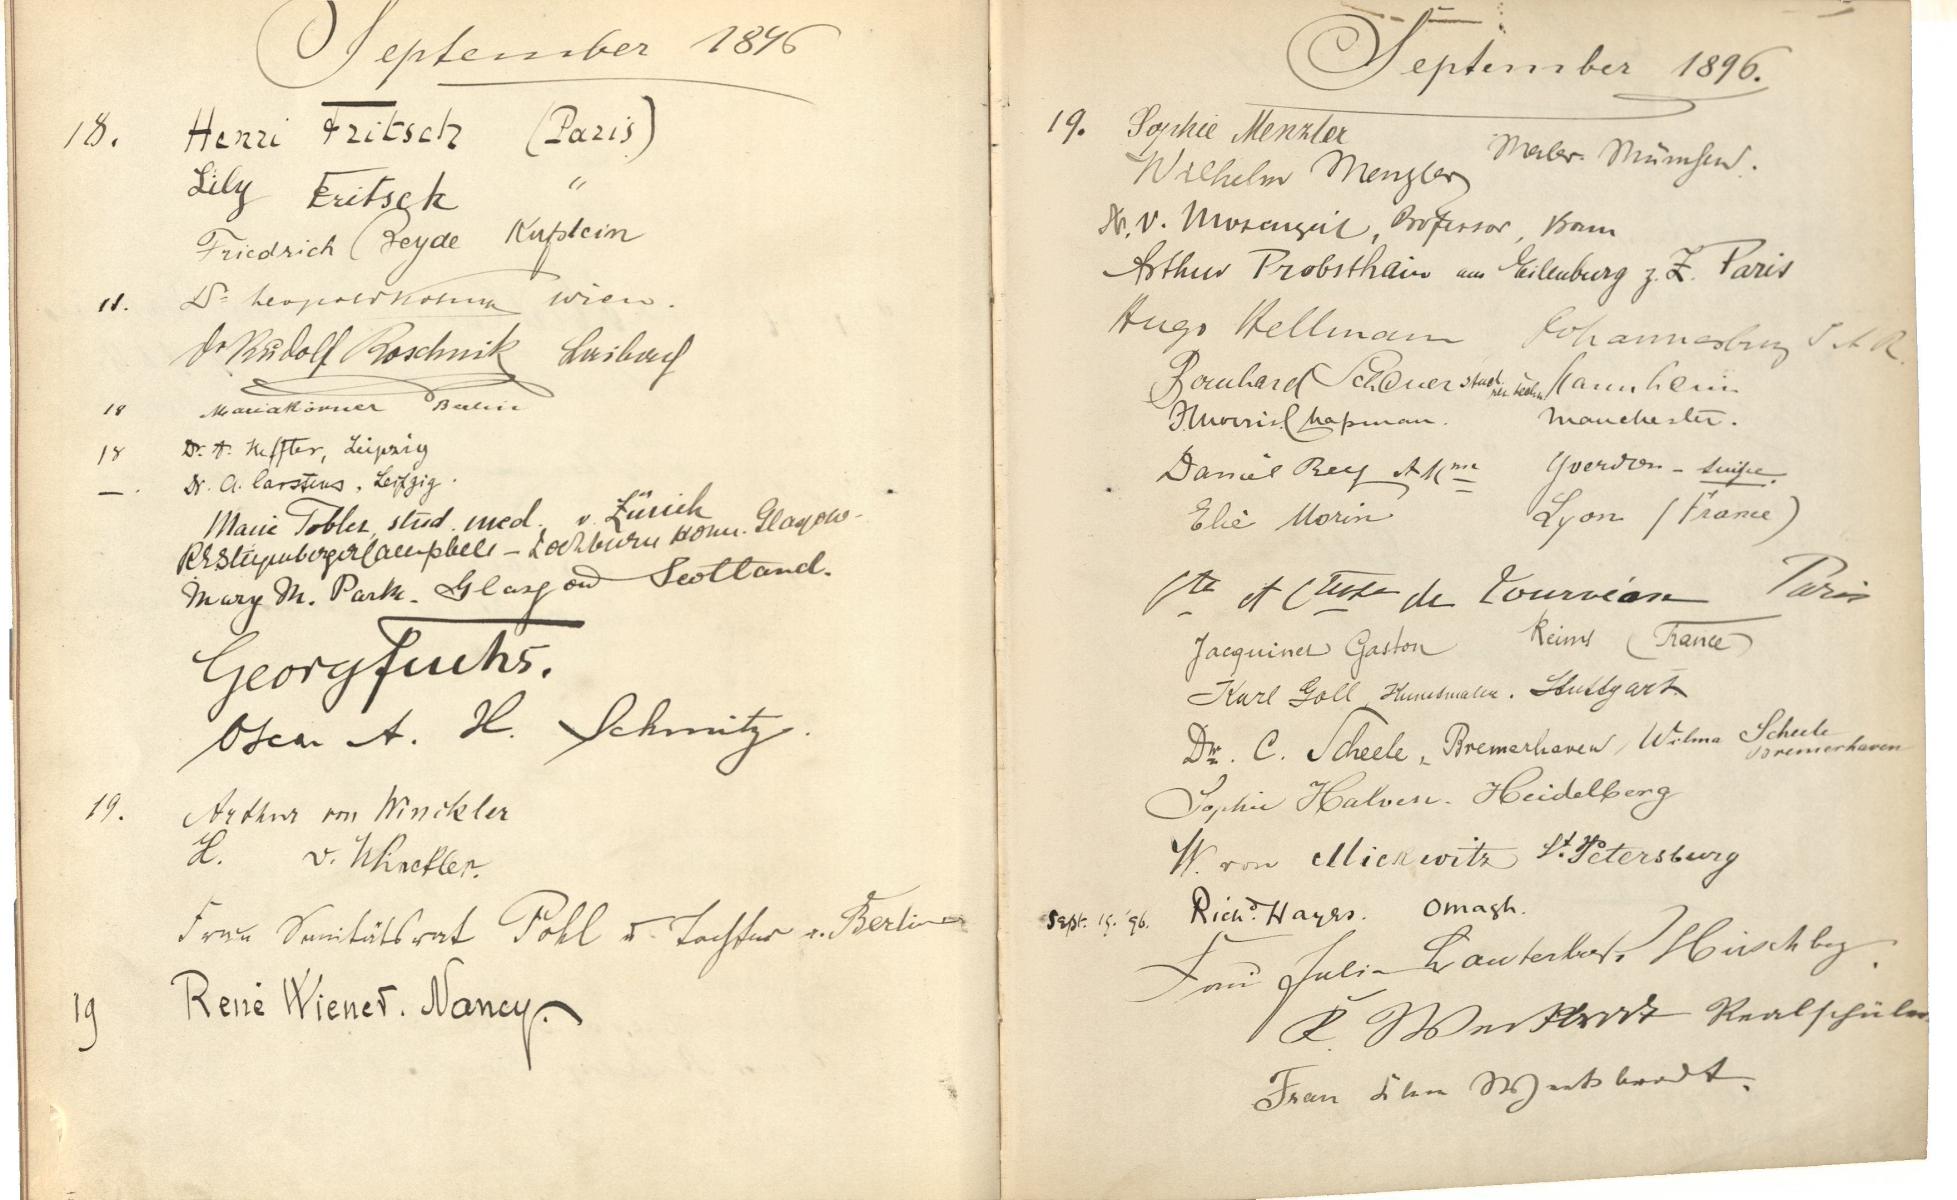 September 1896
18. Henri Fritsch (Paris)
Lily Fritsch "
Friedrich Beyde Kufstein
18. Dr Leopold Wien.
Dr Rudolf Roschnik Laibach
18 Maria Körner Berlin
18 Dr. A. Heffter, Leipzig
— . Dr. A. Carstens, Leipzig.
Marie Tobler, stud. med. v. Zürich
Campbell – Lochburn Glasgow
Mary M. Park. Glasgow Scotland.
Georg Fuchs.
Oscar A. H. Schmitz.
19. Arthur von Winckler
H. v. Winckler.
Frau Sanitätsrat Pohl u. Tochter v. Berlin
19 René Wiener. Nancy.
September 1896.
19. Sophie Menzler
Wilhelm Menzler Maler. München.
Dr. v. Mosengeil, Professor, Bonn
Arthur Probsthain aus Eilenburg z. Z. Paris
Hugo Hellmann Johannesburg S A R.
Bernhard Scheuer stud. Mannheim
Chapman. Manchester.
Daniel Rey Yverdon – Suisse.
Elie Morin Lyon (France)
Cte et Ctesse de Paris
Jacquinet Gaston Reims (France)
Karl Goll, Kunstmaler. Stuttgart
Dr. C. Scheele, Bremerhaven, Wilma Scheele Bremerhaven
Sophie Heidelberg
W. von Mickwitz St. Petersburg
Sept. 19. '96. Richd. Hayes. Omagh.
Julie Hirschberg.
R. Realschüler
Frau